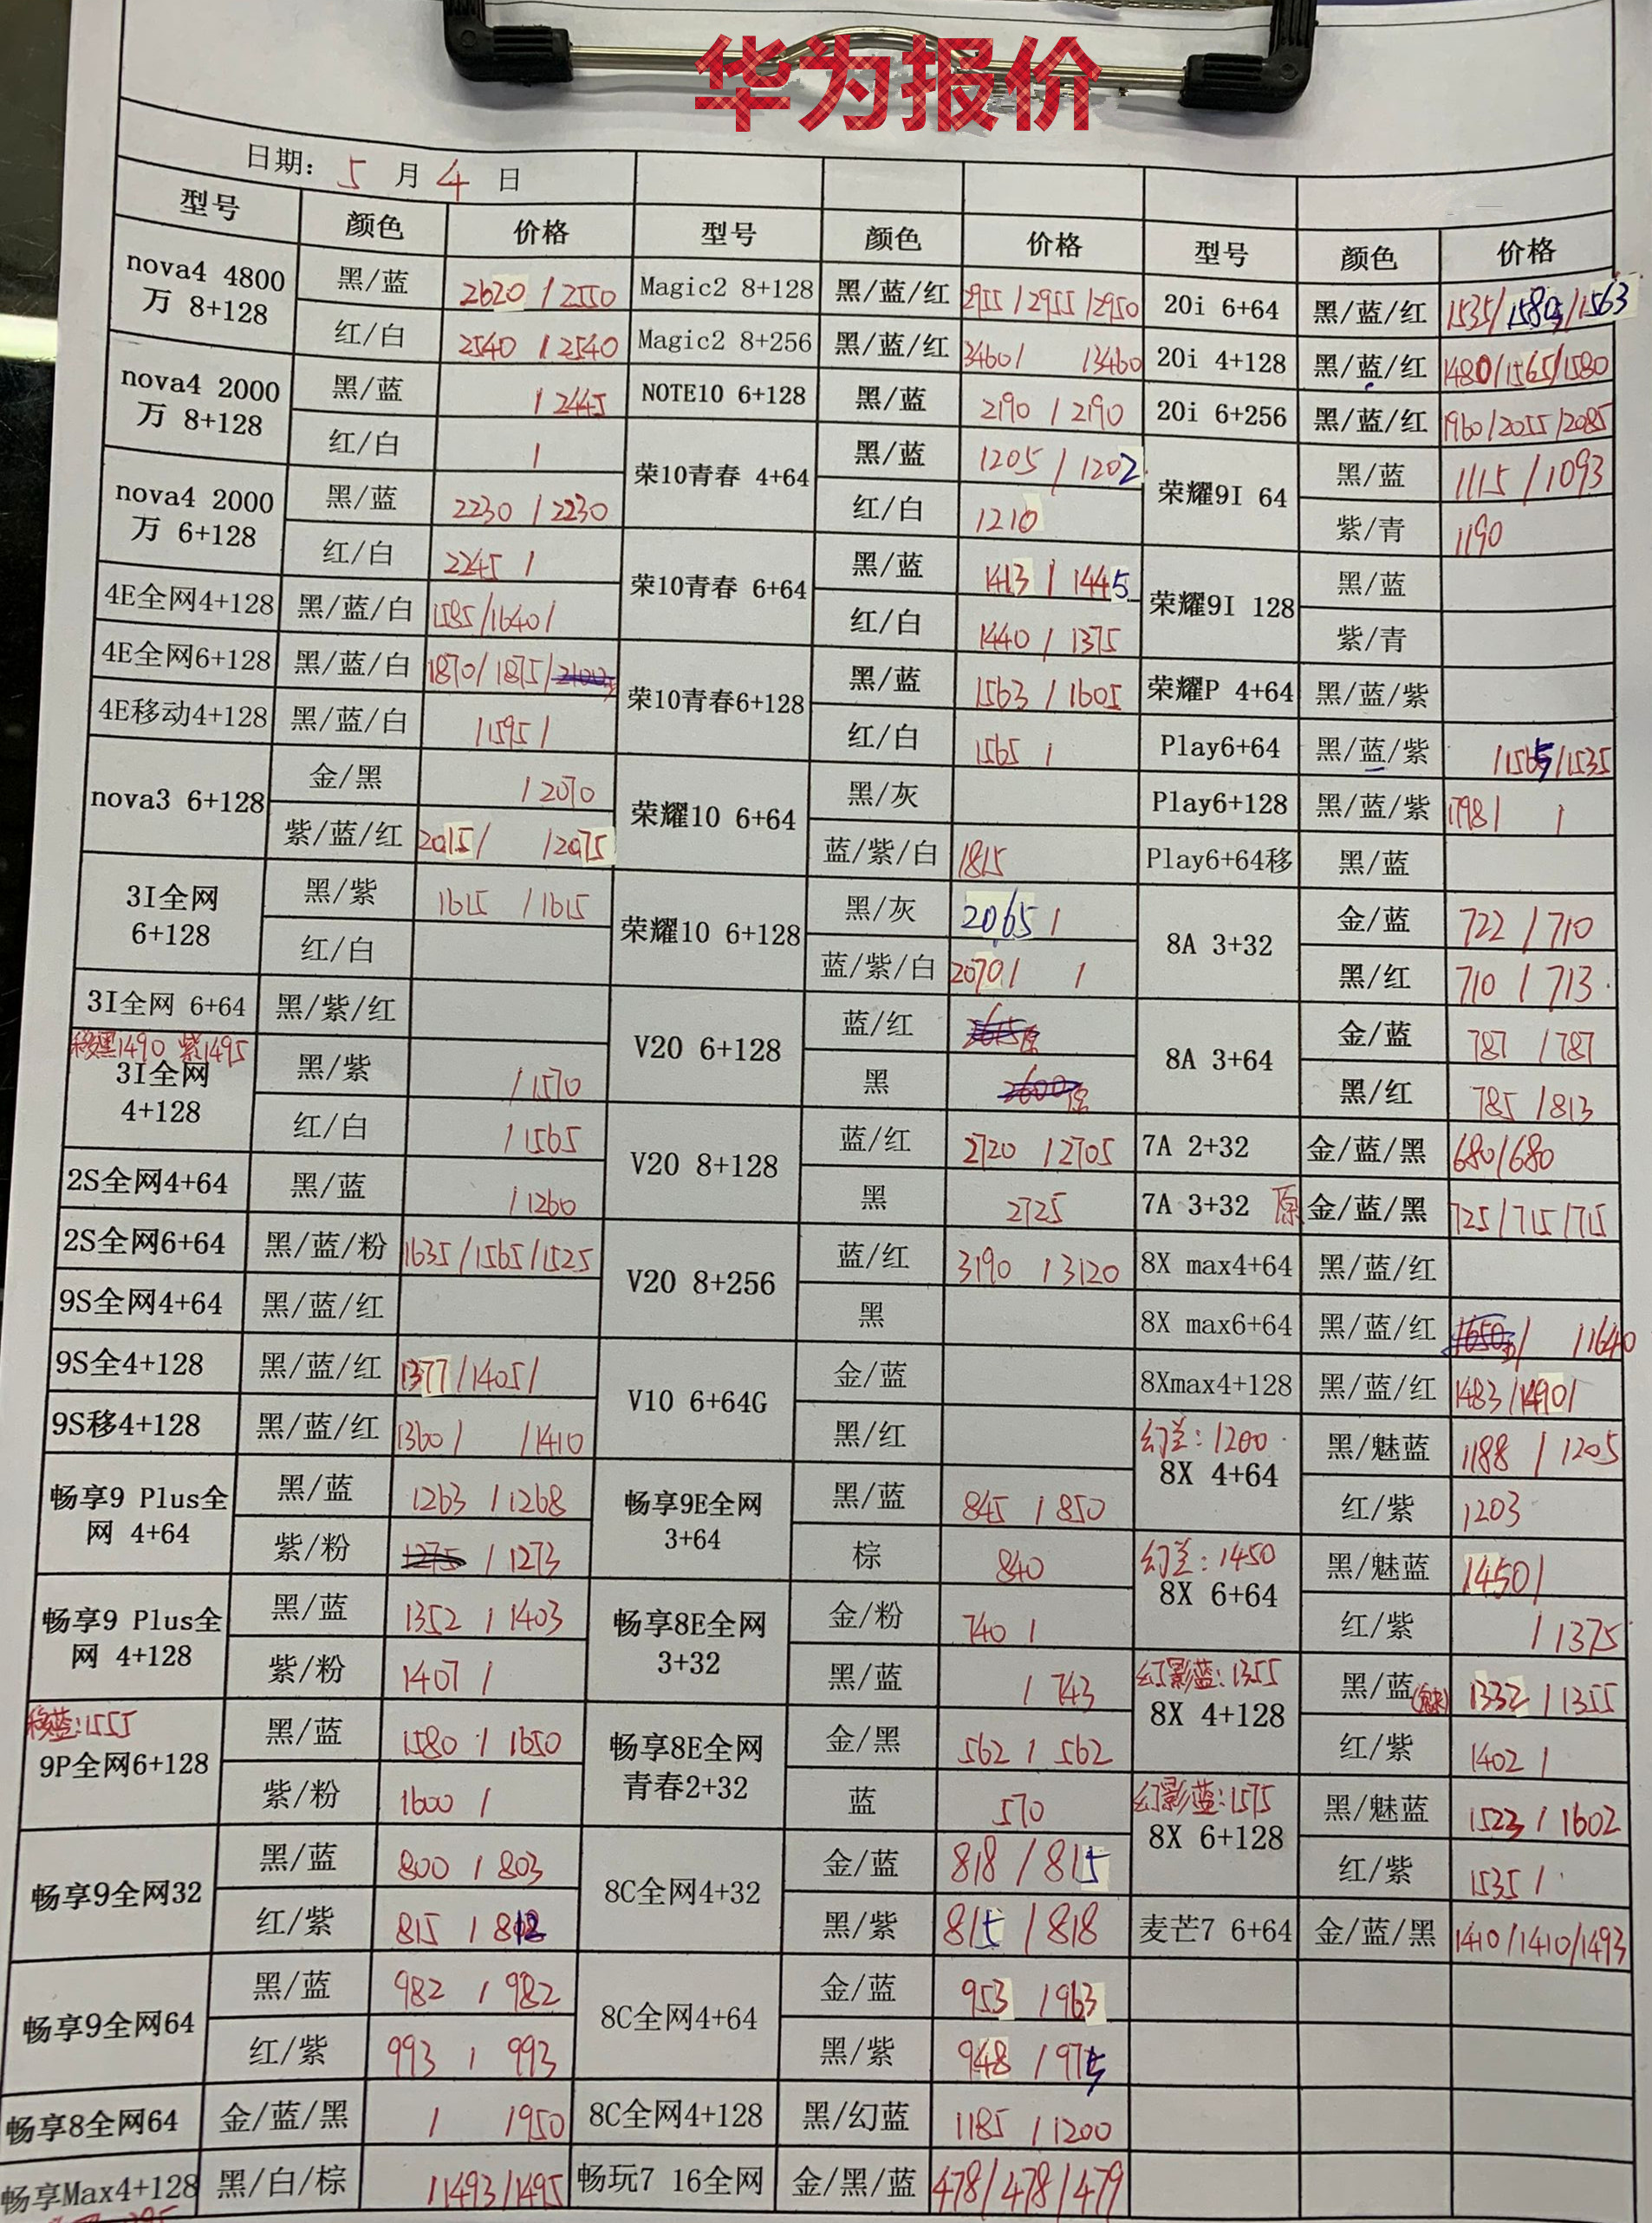 华为报价
日期: 5 月 4 日
型号 颜色 价格 型号 颜色 价格 型号 颜色 价格
nova4 4800万 8+128 黑/蓝 2620 / 2550 Magic2 8+128 黑/蓝/红 2955 / 2955 / 2950 20i 6+64 黑/蓝/红 1535/ 1580 /1563
红/白 2540 / 2540 Magic2 8+256 黑/蓝/红 3460/ /3460 20i 4+128 黑/蓝/红 1480/1565/1580
nova4 2000万 8+128 黑/蓝 / 2445 NOTE10 6+128 黑/蓝 2190 / 2190 20i 6+256 黑/蓝/红 1960/2055/2085
红/白 / 荣10青春 4+64 黑/蓝 1205 / 1202 荣耀9I 64 黑/蓝 1115 / 1093
nova4 2000万 6+128 黑/蓝 2230 / 2230 红/白 1210 紫/青 1190
红/白 2245 / 荣10青春 6+64 黑/蓝 1413 / 1445 荣耀9I 128 黑/蓝
4E全网4+128 黑/蓝/白 1585/1640/ 红/白 1440 / 1375 紫/青
4E全网6+128 黑/蓝/白 1870/1875/ 荣10青春6+128 黑/蓝 1563 / 1605 荣耀P 4+64 黑/蓝/紫
4E移动4+128 黑/蓝/白 /1595/ 红/白 1565 / Play6+64 黑/蓝/紫 /1565/1535
nova3 6+128 金/黑 / 2070 荣耀10 6+64 黑/灰 Play6+128 黑/蓝/紫 1798/ /
紫/蓝/红 2015/ /2075 蓝/紫/白 1815 Play6+64移 黑/蓝
3I全网 6+128 黑/紫 1615 /1615 荣耀10 6+128 黑/灰 2065 / 8A 3+32 金/蓝 722 / 710
红/白 蓝/紫/白 2070/ / 黑/红 710 / 713
3I全网 6+64 黑/紫/红 V20 6+128 蓝/红 8A 3+64 金/蓝 787 /787
移黑1490 紫1495
3I全网 4+128 黑/紫 / 1570 黑 黑/红 785 /813
红/白 / 1565 V20 8+128 蓝/红 2720 /2705 7A 2+32 金/蓝/黑 680/680
2S全网4+64 黑/蓝 / 1260 黑 2725 7A 3+32 原 金/蓝/黑 725/715/715
2S全网6+64 黑/蓝/粉 1635/1565/1525 V20 8+256 蓝/红 3190 /3120 8X max4+64 黑/蓝/红
9S全网4+64 黑/蓝/红 黑 8X max6+64 黑/蓝/红 / /1640
9S全4+128 黑/蓝/红 1377/1405/ V10 6+64G 金/蓝 8Xmax4+128 黑/蓝/红 1483/1490/
9S移4+128 黑/蓝/红 1360/ /1410 黑/红 幻兰: 1200 8X 4+64 黑/魅蓝 1188 / 1205
畅享9 Plus全网 4+64 黑/蓝 1263 /1268 畅享9E全网 3+64 黑/蓝 845 /850 红/紫 1203
紫/粉 1275 / 1273 棕 840 幻兰: 1450 8X 6+64 黑/魅蓝 1450/
畅享9 Plus全网 4+128 黑/蓝 1352 / 1403 畅享8E全网 3+32 金/粉 740 / 红/紫 / 1375
紫/粉 1407 / 黑/蓝 / 743 幻影蓝: 1355 8X 4+128 黑/蓝 1332 / 1355
移蓝: 1555
9P全网6+128 黑/蓝 1580 / 1650 畅享8E全网青春2+32 金/黑 562 / 562 红/紫 1402 /
紫/粉 1600 / 蓝 570 幻影蓝: 1575 8X 6+128 黑/魅蓝 1523 / 1602
畅享9全网32 黑/蓝 800 / 803 8C全网4+32 金/蓝 818 / 815 红/紫 1535 /
红/紫 815 / 812 黑/紫 815 / 818 麦芒7 6+64 金/蓝/黑 1410/1410/1493
畅享9全网64 黑/蓝 982 / 982 8C全网4+64 金/蓝 953 / 963
红/紫 993 / 993 黑/紫 948 / 975
畅享8全网64 金/蓝/黑 / 1950 8C全网4+128 黑/幻蓝 1185 / 1200
畅享Max4+128 黑/白/棕 /1493/1495 畅玩7 16全网 金/黑/蓝 478/478/479